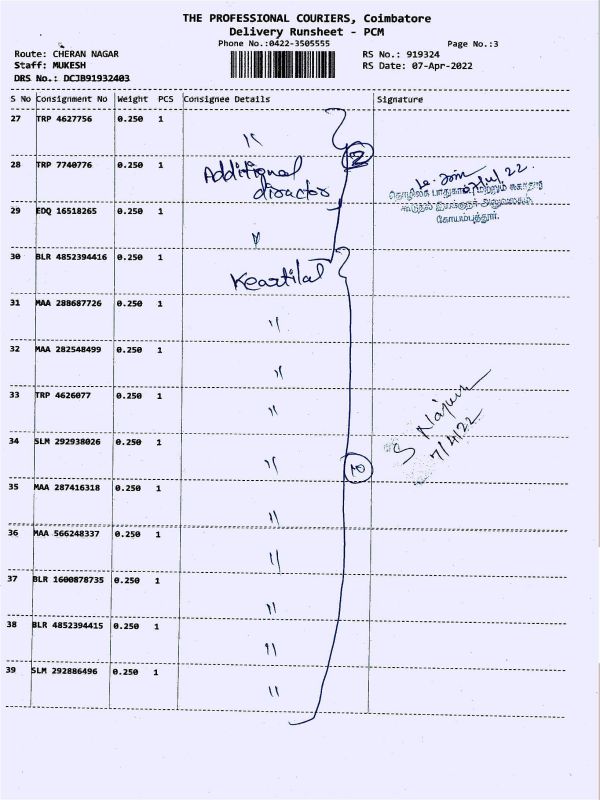 THE PROFESSIONAL COURIERS, Coimbatore
Delivery Runsheet - PCM
Phone No.:0422-3505555
Page No.:3
Route: CHERAN NAGAR
RS No.: 919324
Staff: MUKESH
RS Date: 07-Apr-2022
DRS No.: DCJB91932403
S No Consignment No Weight PCS Consignee Details Signature
27 TRP 4627756 0.250 1 "
28 TRP 7740776 0.250 1 Additional
director
29 EDQ 16518265 0.250 1 "
கோயம்புத்தூர்.
30 BLR 4852394416 0.250 1
31 MAA 288687726 0.250 1 "
32 MAA 282548499 0.250 1 "
33 TRP 4626077 0.250 1 "
34 SLM 292938026 0.250 1 " 10
7/4/22
35 MAA 287416318 0.250 1 "
36 MAA 566248337 0.250 1 "
37 BLR 1600878735 0.250 1 "
38 BLR 4852394415 0.250 1 "
39 SLM 292886496 0.250 1 "